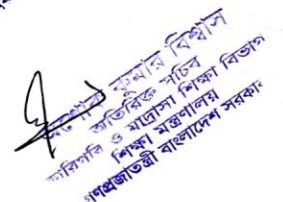 কুমার বিশ্বাস
অতিরিক্ত সচিব
কারিগরি ও মাদ্রাসা শিক্ষা বিভাগ
শিক্ষা মন্ত্রণালয়
গণপ্রজাতন্ত্রী বাংলাদেশ সরকার